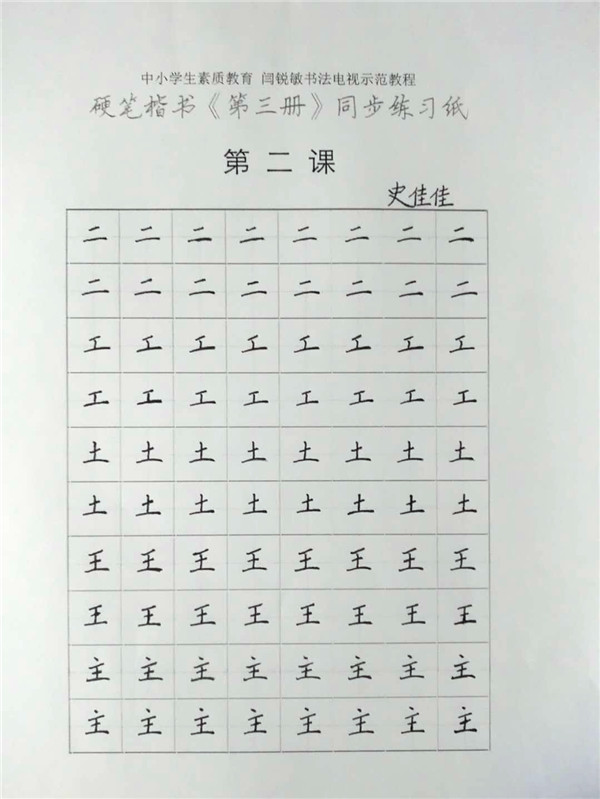 中小学生素质教育 闫锐敏书法电视示范教程
硬笔楷书《第三册》同步练习纸
第二课
史佳佳
二 二 二 二 二 二 二 二
二 二 二 二 二 二 二 二
工 工 工 工 工 工 工 工
工 工 工 工 工 工 工 工
土 土 土 土 土 土 土 土
土 土 土 土 土 土 土 土
王 王 王 王 王 王 王 王
王 王 王 王 王 王 王 王
主 主 主 主 主 主 主 主
主 主 主 主 主 主 主 主